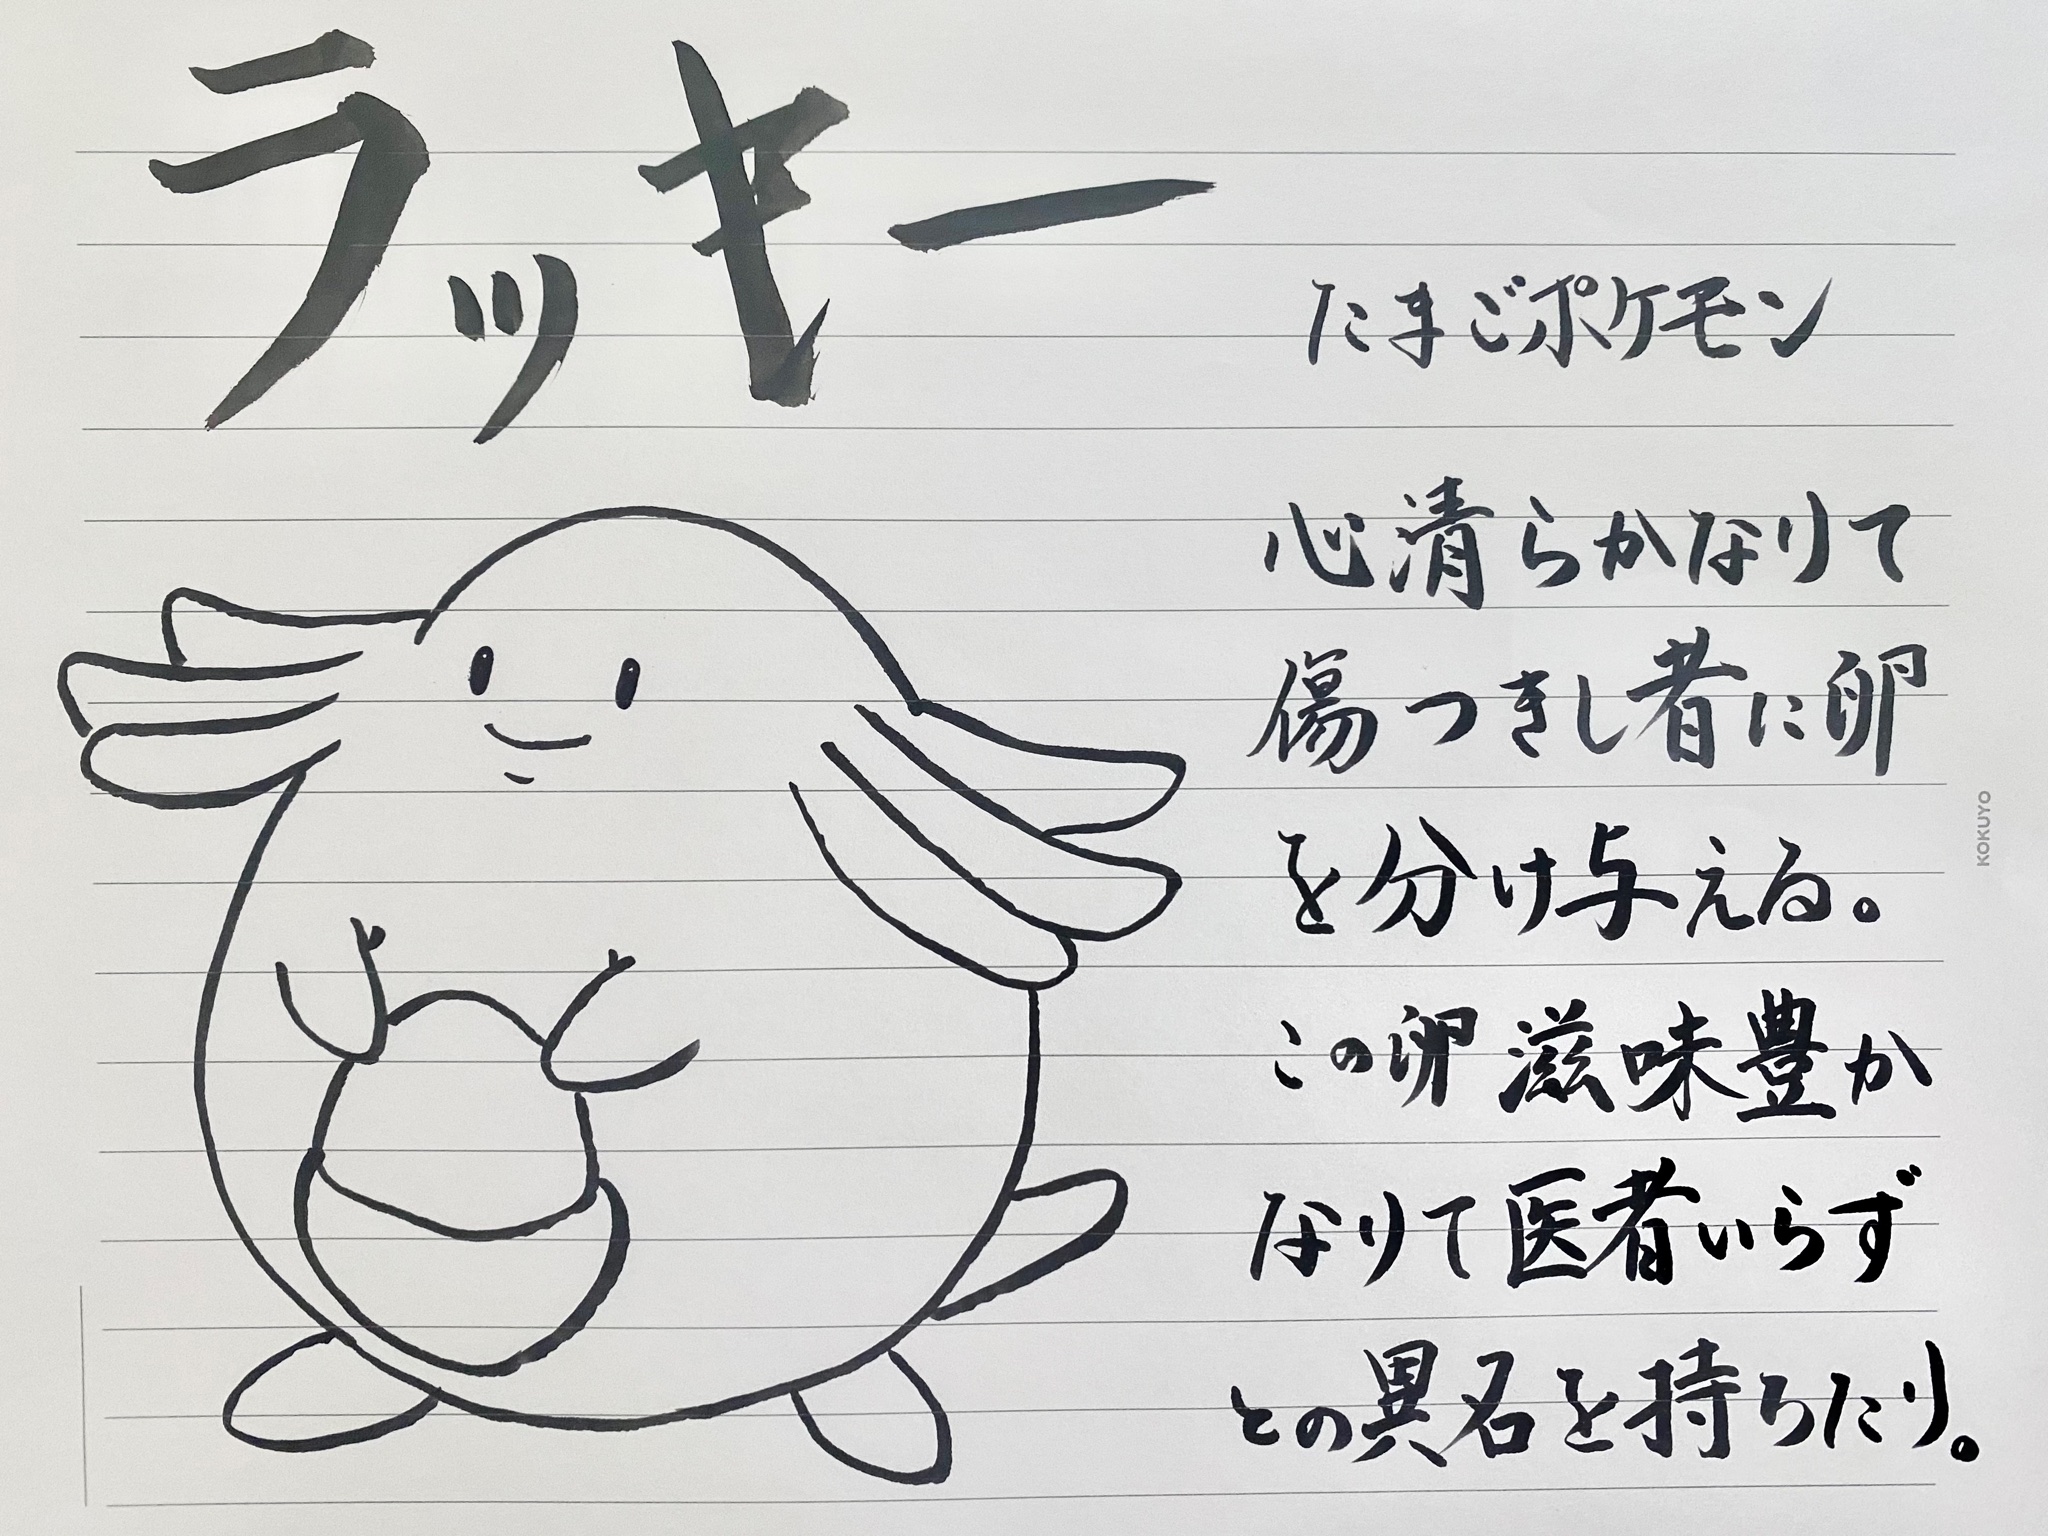 ラッキー
たまごポケモン
心清らかなりて
傷つきし者に卵
を分け与える。
この卵滋味豊か
なりて医者いらず
との異名を持ちたり。
KOKUYO